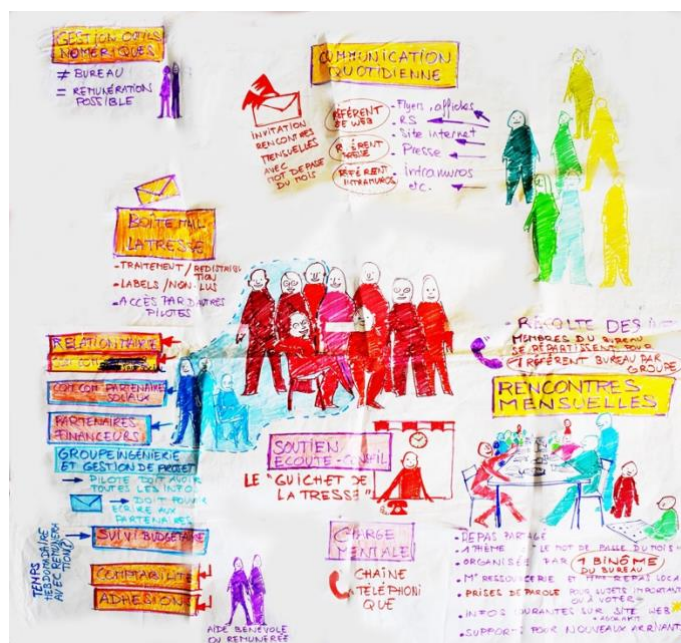 GESTION OUTILS
NUMÉRIQUES
≠ BUREAU
= RÉMUNÉRATION
POSSIBLE
COMMUNICATION
QUOTIDIENNE
INVITATION
RENCONTRES
MENSUELLES
AVEC
MOT DE PASSE
DU MOIS
RÉFÉRENT
WEB
RÉFÉRENT
RÉFÉRENT
INTRAMUROS
- Flyers, affiches
- RS
- Site internet
- Presse
- Intramuros
etc.
BOÎTE MAIL
LATRESSE
- TRAITEMENT / REDISTRIBUTION
- LABELS / NON-LUS
- ACCÈS PAR D'AUTRES
PILOTES
RELATION MAIRIE
COM COM PARTENAIRE
SOCIAUX
PARTENAIRES
FINANCEURS
GROUPE INGÉNIERIE
ET GESTION DE PROJET
→ PILOTE DOIT AVOIR
TOUTES LES INFO.
→ DOIT POUVOIR
ÉCRIRE AUX
PARTENAIRES
TEMPS
HEBDOMADAIRE
AVEC RÉMUNÉRATION
SUIVI BUDGÉTAIRE
COMPTABILITÉ
ADHÉSION
AIDE BÉNÉVOLE
OU RÉMUNÉRÉE
SOUTIEN
ÉCOUTE-CONSEIL
LE "GUICHET DE
LA TRESSE"
CHARGE
MENTALE
CHAÎNE
TÉLÉPHONI
QUE
- RÉCOLTE DES
MEMBRES DU BUREAU
SE RÉPARTISSENT POUR
1 RÉFÉRENT BUREAU PAR
GROUPE
RENCONTRES
MENSUELLES
- REPAS PARTAGÉ
- 1 THÈME : LE MOT DE PASSE DU MOIS
- ORGANISÉE PAR 1 BINÔME
DU BUREAU
- RESSOURCERIE ET REPAS LOCA
- PRISES DE PAROLE POUR SUJETS IMPORTANT
OU À VOTER
- INFOS COURANTES SUR SITE WEB
- SUPPORTS POUR NOUVEAUX ARRIVANT